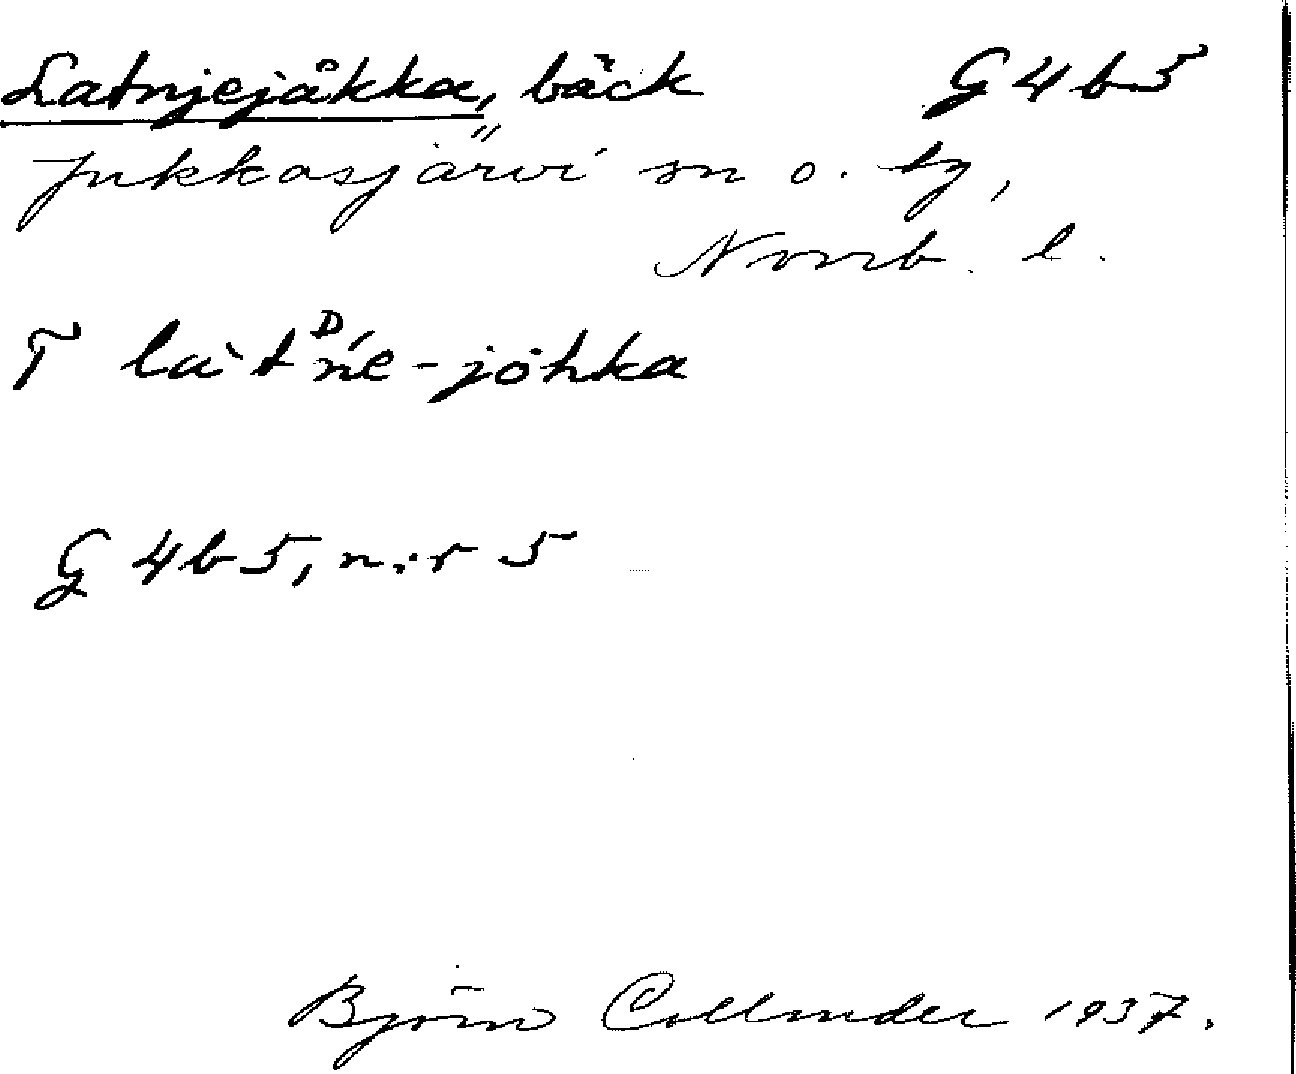 Latnjejåkka, bäck G4b5
Jukkasjärvi sn o. tg,
Norrb. l.
T làtᴰńe-jȯhka
G 4b5, n:r 5
Björn Collinder 1937.